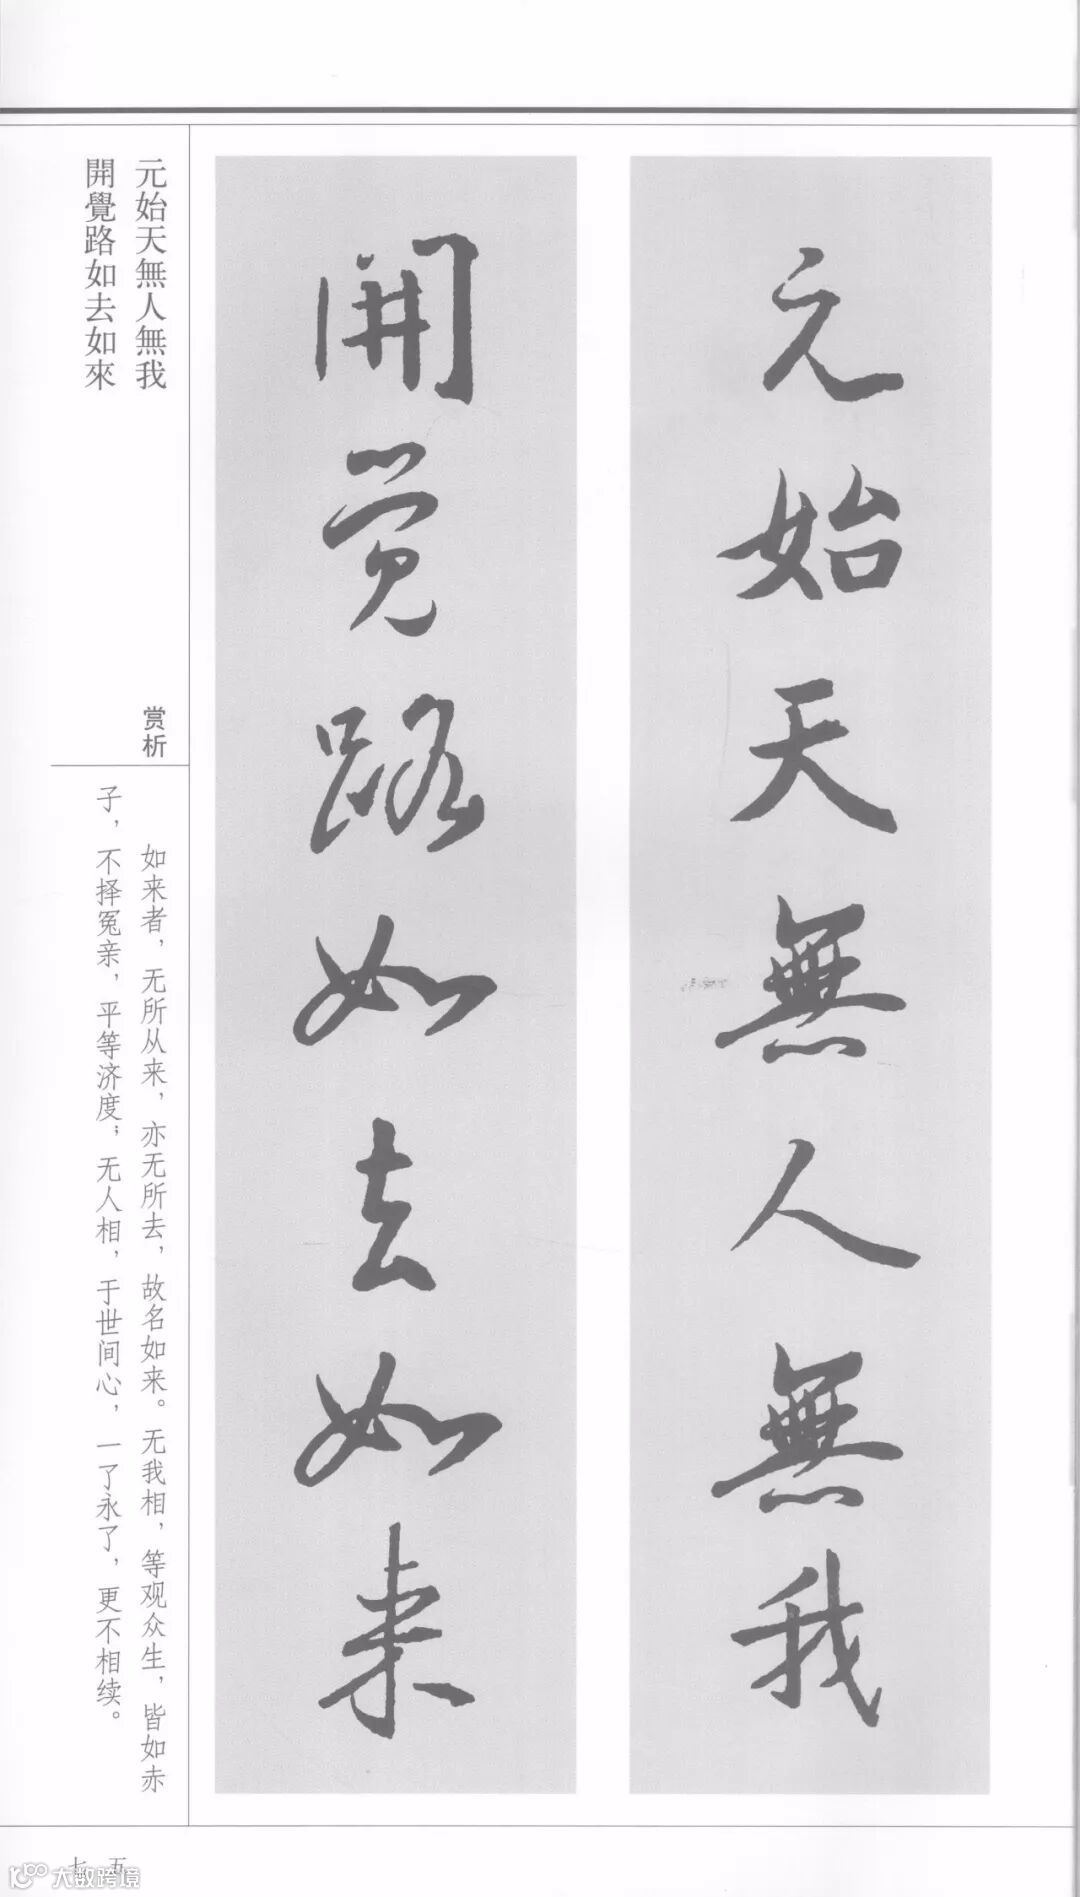 元始天無人無我
開覺路如去如来
元始天無人無我
開覺路如去如來
赏析
如来者，无所从来，亦无所去，故名如来。无我相，等观众生，皆如赤
子，不择冤亲，平等济度；无人相，于世间心，一了永了，更不相续。
七五
大数跨境